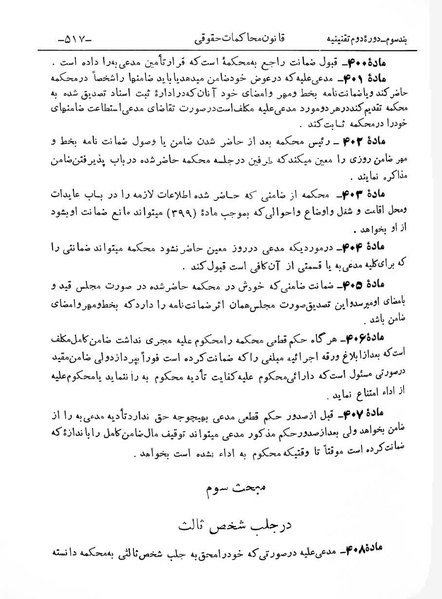 بندسوم_دورۀ دوم تقنینیه قانون محاکمات حقوقی _۵۱۷_
مادۀ ۴۰۰_ قبول ضمانت راجع به محکمۀ است که قرار تأمین مدعی به را داده است .
مادۀ ۴۰۱_ مدعی علیه که در عوض خود ضامن میدهد باید ضامنها را شخصاً در محکمه
حاضر کند و یا ضمانت نامه بخط و مهر و امضای خود آنان که در ادارۀ ثبت اسناد تصدیق شده به
محکمه تقدیم کند در هر دو مورد مدعی علیه مکلف است در صورت تقاضای مدعی استطاعت ضامنهای
خود را در محکمه ثابت کند .
مادۀ ۴۰۲_ رئیس محکمه بعد از حاضر شدن ضامن یا وصول ضمانت نامه بخط و
مهر ضامن روزی را معین میکند که طرفین در جلسه محکمه حاضر شده در باب پذیرفتن ضامن
مذاکره نمایند .
مادۀ ۴۰۳_ محکمه از ضامنی که حاضر شده اطلاعات لازمه را در باب عایدات
ومحل اقامت و شغل و اوضاع و احوالی که بموجب مادۀ (۳۹۹) میتواند مانع ضمانت او بشود
از او بخواهد .
مادۀ ۴۰۴_ در موردیکه مدعی در روز معین حاضر نشود محکمه میتواند ضمانتی را
که برای کلیه مدعی به یا قسمتی از آن کافی است قبول کند .
مادۀ ۴۰۵_ ضمانت ضامنی که خودش در محکمه حاضر شده در صورت مجلس قید و
بامضای او میرسد و این تصدیق صورت مجلس همان اثر ضمانت نامه را دارد که بخط و مهر و امضای
ضامن باشد .
مادۀ ۴۰۶_ هر گاه حکم قطعی محکمه را محکوم علیه مجری نداشت ضامن کامل مکلف
است که بعد از ابلاغ ورقه اجرائیه مبلغی را که ضمانت کرده است فوراً بپردازد ولی ضامن مقید
در صورتی مسئول است که دارائی محکوم علیه کفایت تأدیه محکوم به را ننماید یا محکوم علیه
از اداء امتناع نماید .
مادۀ ۴۰۷_ قبل از صدور حکم قطعی مدعی بهیچوجه حق ندارد تأدیه مدعی به را از
ضامن بخواهد ولی بعد از صدور حکم مذکور مدعی میتواند توقیف مال ضامن کامل را باندازۀ که
ضمانت کرده است موقتاً تا وقتیکه محکوم به اداء نشده است بخواهد .
مبحث سوم
در جلب شخص ثالث
مادۀ ۴۰۸_ مدعی علیه در صورتی که خود را محق به جلب شخص ثالثی به محکمه دانسته